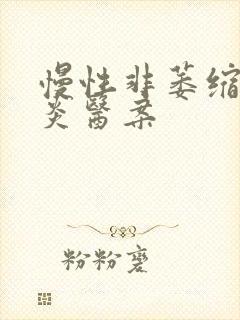 慢性非萎缩
炎醫案
粉粉